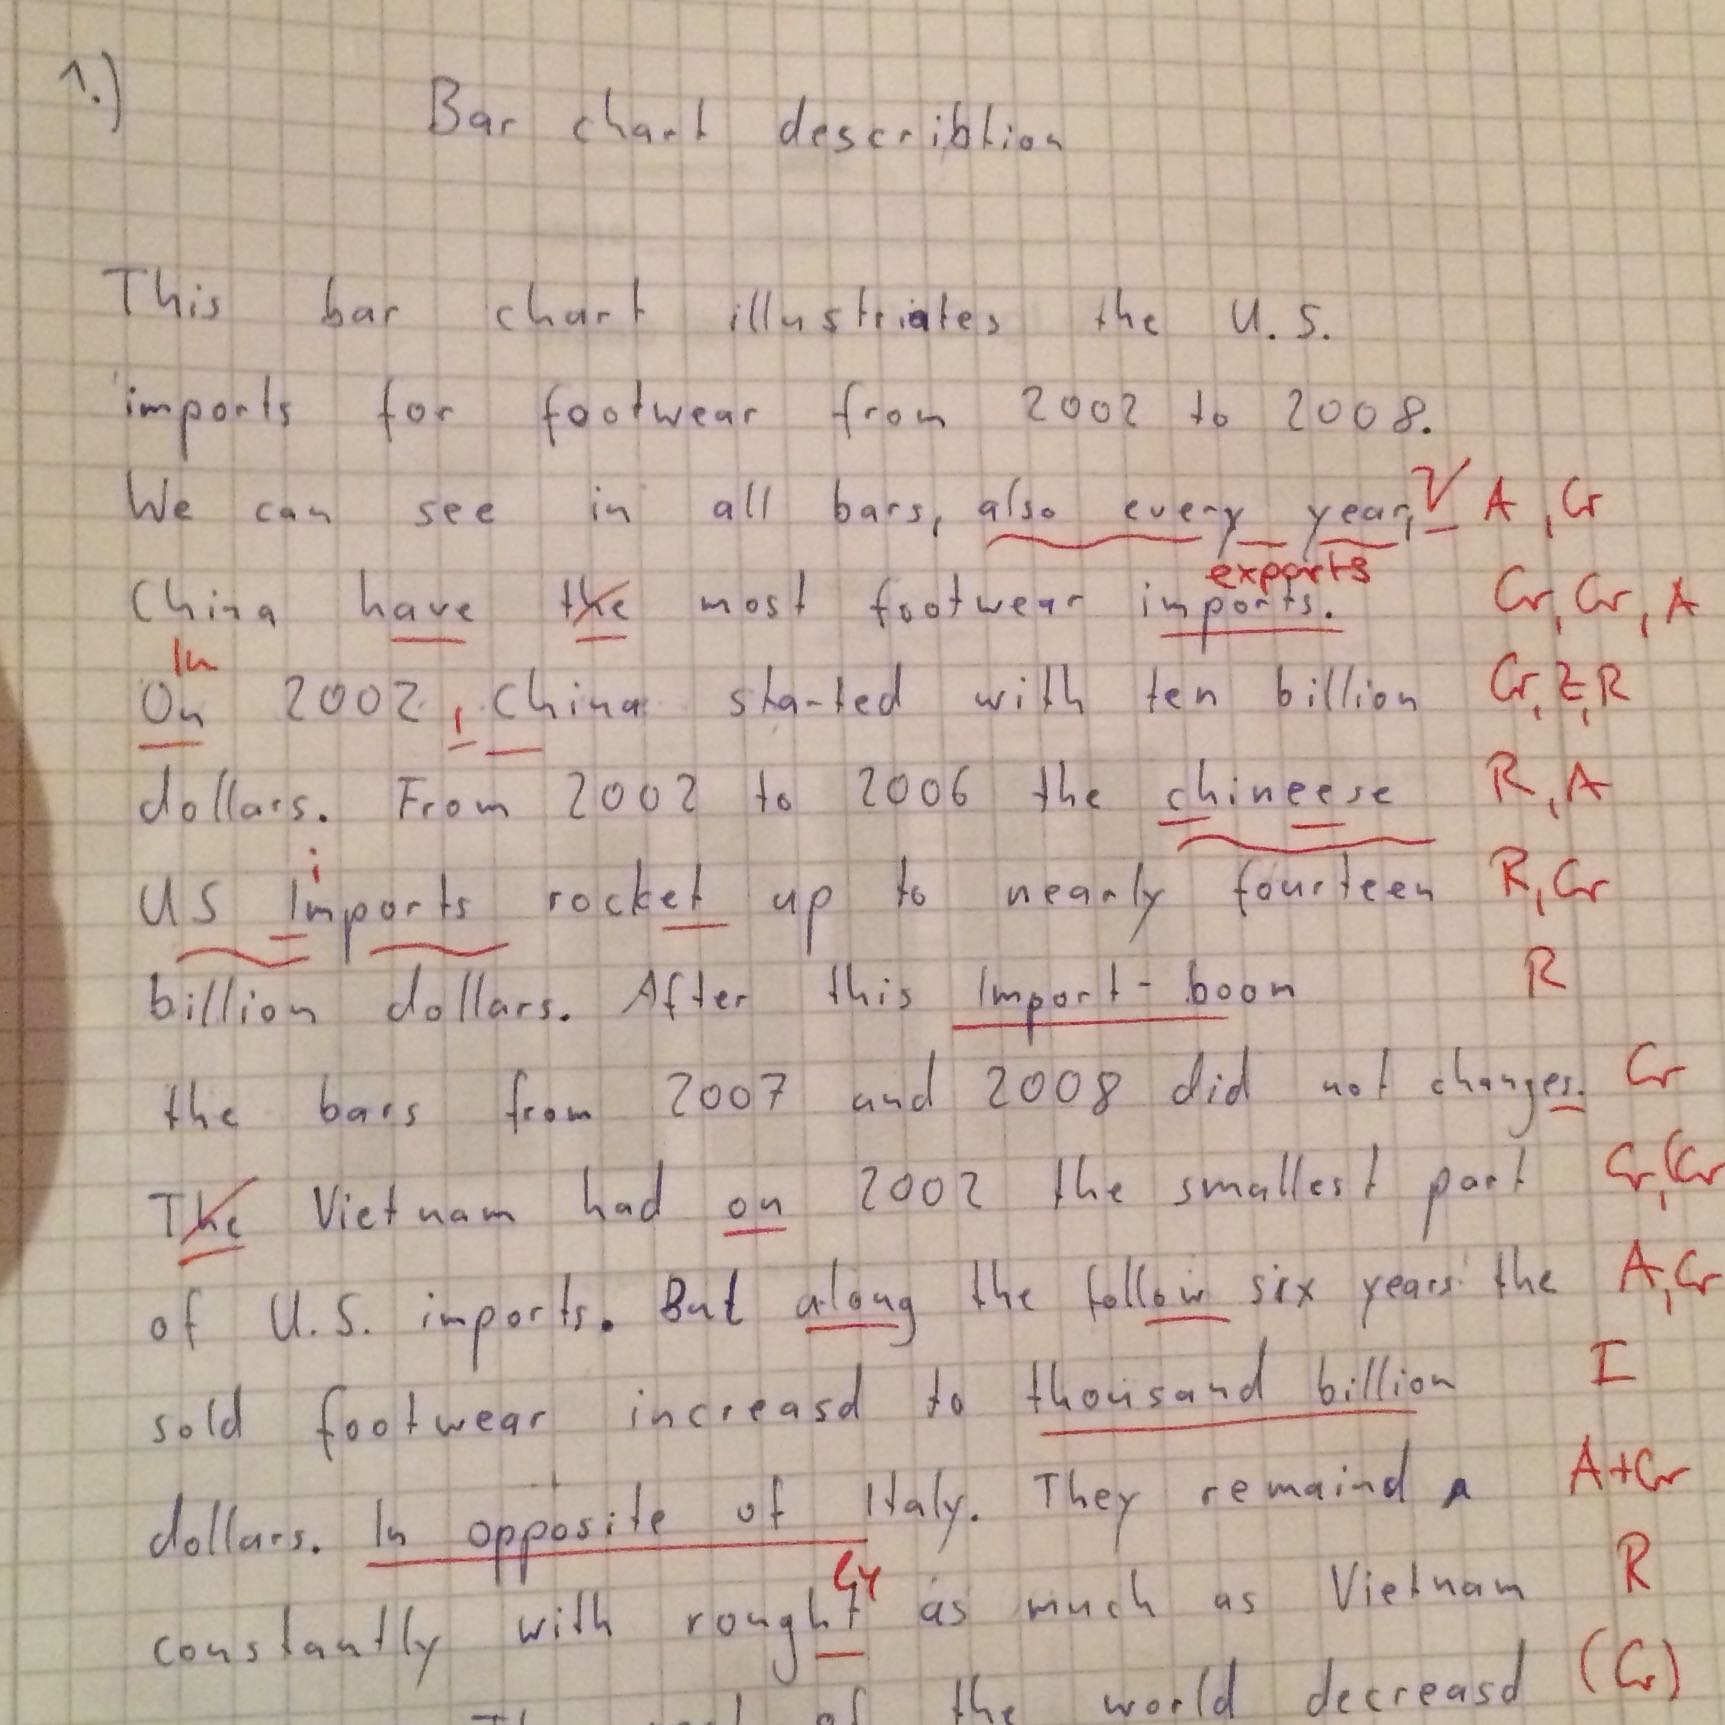 1.) Bar chart describtion
This bar chart illustriates the U.S.
imports for footwear from 2002 to 2008.
We can see in all bars, also every year, V A, Gr
exports
China have the most footwear imports. Gr, Gr, A
In
On 2002, China started with ten billion Gr, Z, R
dollars. From 2002 to 2006 the chineese R, A
i
US Imports rocket up to nearly fourteen R, Gr
billion dollars. After this Import-boom R
the bars from 2007 and 2008 did not changes. Gr
The Vietnam had on 2002 the smallest part Gr, (Gr
of U.S. imports. But along the follow six years the A, Gr
sold footwear increasd to thousand billion I
dollars. In opposite of Italy. They remaind A+Gr
ly
constantly with rought as much as Vietnam R
of the world decreasd (Gr)